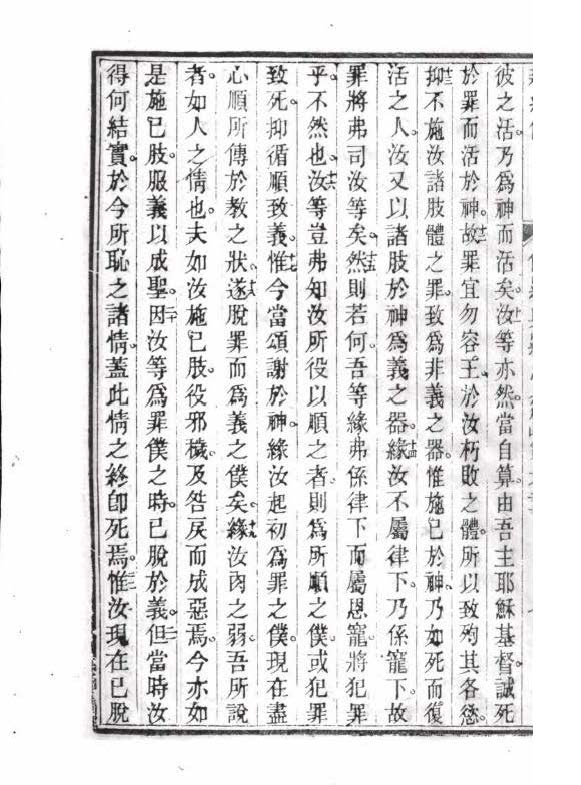 彼之活。乃爲神而活矣。十一汝等亦然。當自算。由吾主耶穌基督。誠死
於罪而活於神。十二故罪宜勿容王。於汝朽敗之體。所以致殉其各慾。
十三抑不施汝諸肢體之罪。致爲非義之器。惟施己於神。乃如死而復
活之人。汝又以諸肢於神爲義之器。十四緣汝不屬律下。乃係寵下。故
罪將弗司汝等矣。十五然則若何。吾等緣弗係律下而屬恩寵。將犯罪
乎。不然也。十六汝等豈弗知汝所役以順之者。則爲所順之僕。或犯罪
致死。抑循順致義。十七惟今當頌謝於神。緣汝起初爲罪之僕。現在盡
心順所傳於教之狀。十八遂脫罪而爲義之僕矣。十九緣汝肉之弱。吾所說
者。如人之情也。夫如汝施己肢。役邪穢。及咎戾而成惡焉。今亦如
是施己肢。服義以成聖。二十因汝等爲罪僕之時。已脫於義。二一但當時汝
得何結實。於今所恥之諸情。蓋此情之終即死焉。二二惟汝現在已脫